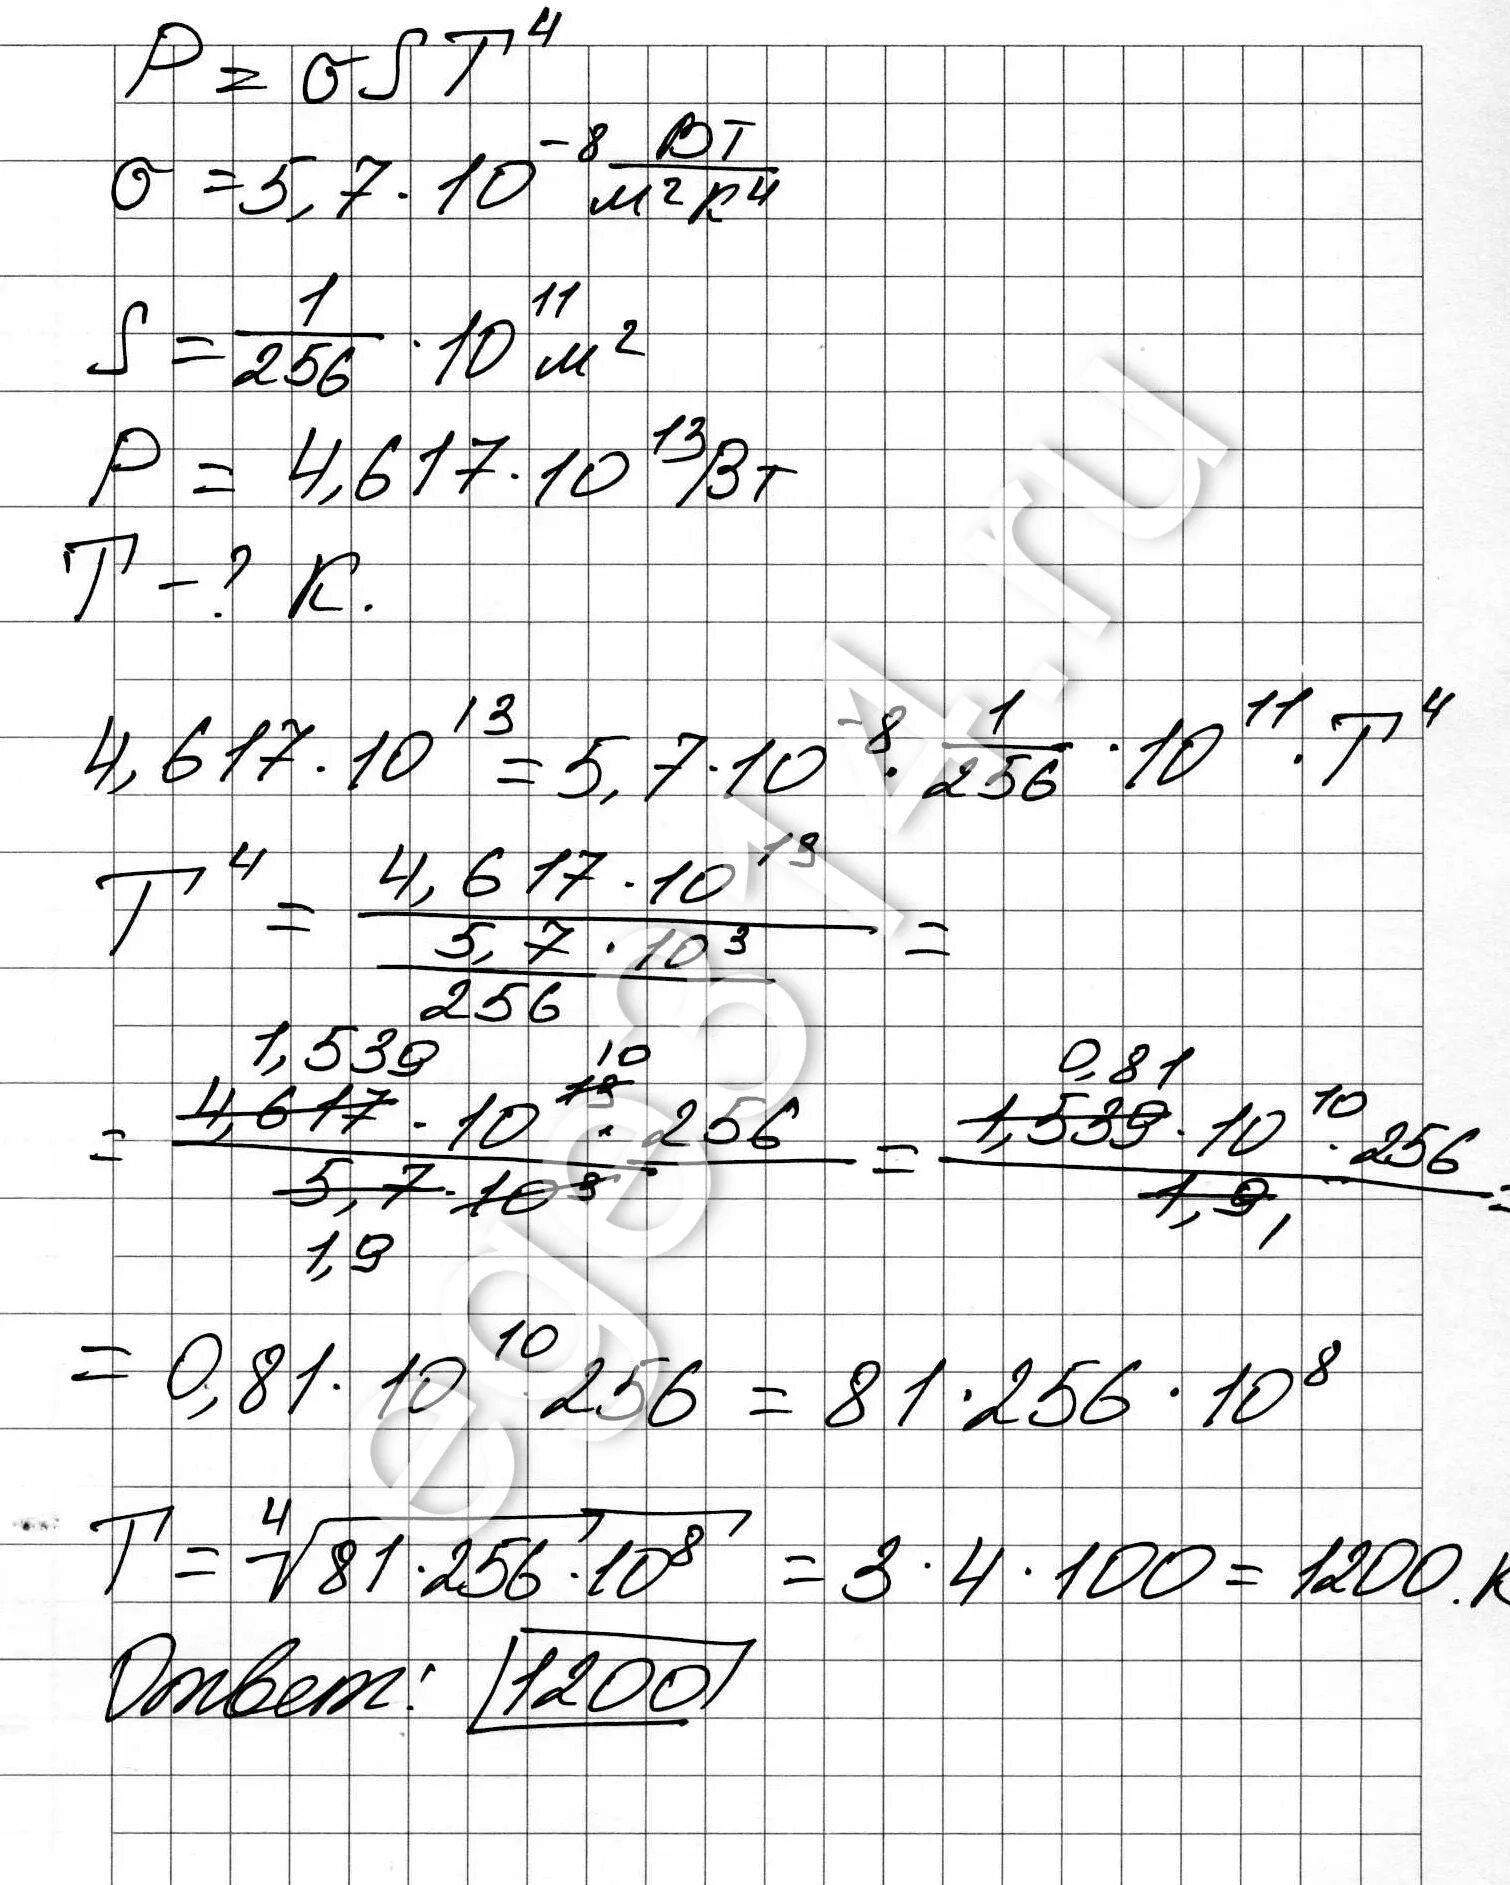 P = σST⁴
σ = 5,7 · 10⁻⁸ Вт/(м²К⁴)
S = 1/256 · 10¹¹ м²
P = 4,617 · 10¹³ Вт
T - ? К.
4,617 · 10¹³ = 5,7 · 10⁻⁸ · 1/256 · 10¹¹ · T⁴
T⁴ = (4,617 · 10¹³)/((5,7 · 10³)/256) =
1,539 10 0,81
= (4,617 · 10¹³ · 256)/(5,7 · 10³) = (1,539 · 10¹⁰ · 256)/(1,9) =
1,9
= 0,81 · 10¹⁰ · 256 = 81 · 256 · 10⁸
T = ⁴√(81 · 256 · 10⁸) = 3 · 4 · 100 = 1200. К
Ответ: 1200
ege314.ru